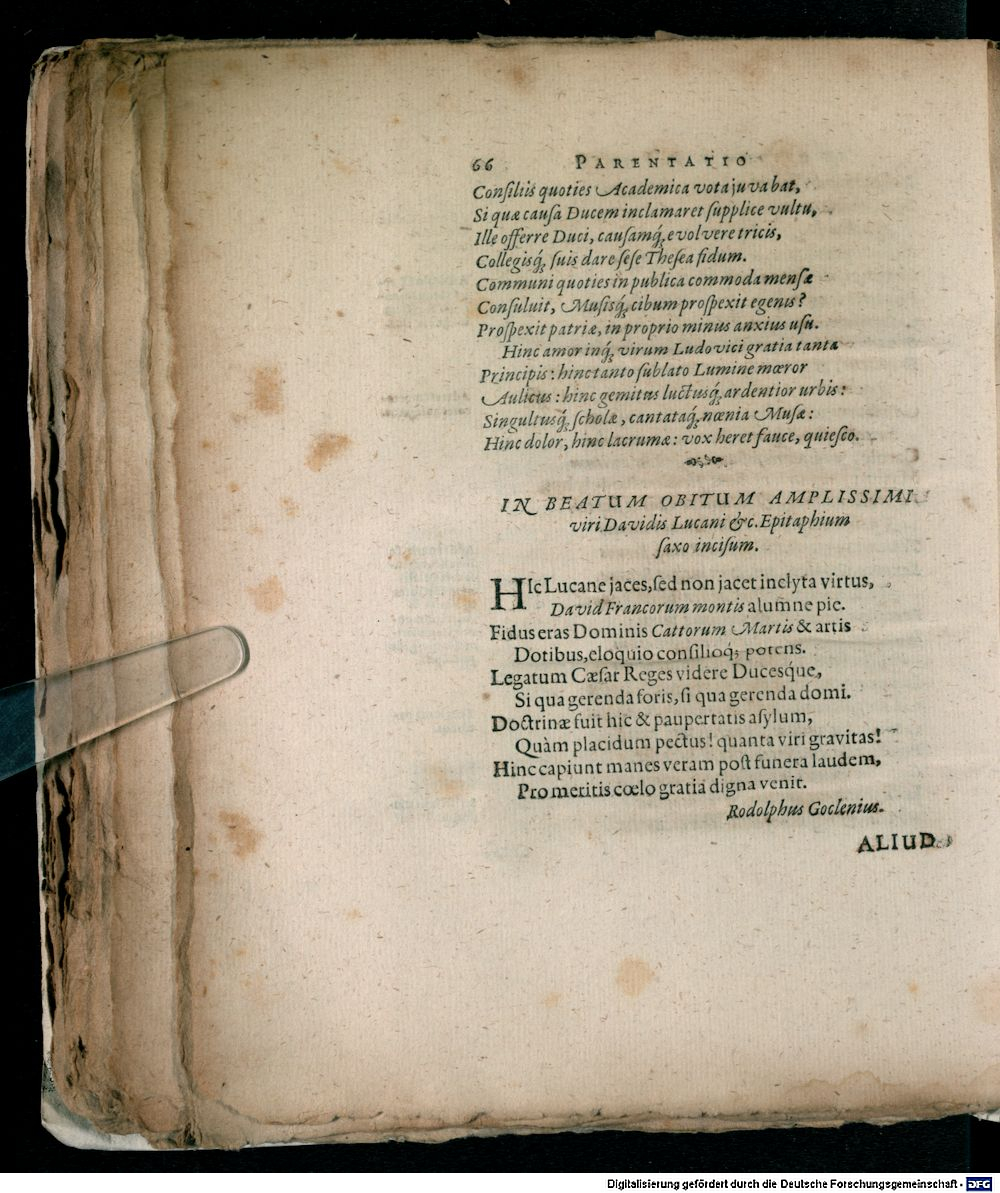 66 PARENTATIO
Consiliis quoties Academica vota juvabat,
Si quæ causa Ducem inclamaret supplice vultu,
Ille offerre Duci, causamq́; evolvere tricis,
Collegisq́; suis dare sese Thesea fidum.
Communi quoties in publica commoda mensæ
Consuluit, Musisq́; cibum prospexit egenis?
Prospexit patriæ, in proprio minus anxius usu.
Hinc amor inq́; virum Ludovici gratia tanta
Principis: hinc tanto sublato Lumine mœror
Aulicus: hinc gemitus luctusq́; ardentior urbis:
Singultusq́; scholæ, cantataq́; nœnia Musæ:
Hinc dolor, hinc lacrumæ: vox heret fauce, quiesco.
IN BEATUM OBITUM AMPLISSIMI
viri Davidis Lucani &c. Epitaphium
saxo incisum.
HIc Lucane jaces, sed non jacet inclyta virtus,
David Francorum montis alumne pie.
Fidus eras Dominis Cattorum Martis & artis
Dotibus, eloquio consilioq́; potens.
Legatum Cæsar Reges videre Ducesq́ue,
Si qua gerenda foris, si qua gerenda domi.
Doctrinæ fuit hic & paupertatis asylum,
Quàm placidum pectus! quanta viri gravitas!
Hinc capiunt manes veram post funera laudem,
Pro meritis cœlo gratia digna venit.
Rodolphus Goclenius.
ALIUD
Digitalisierung gefördert durch die Deutsche Forschungsgemeinschaft - DFG